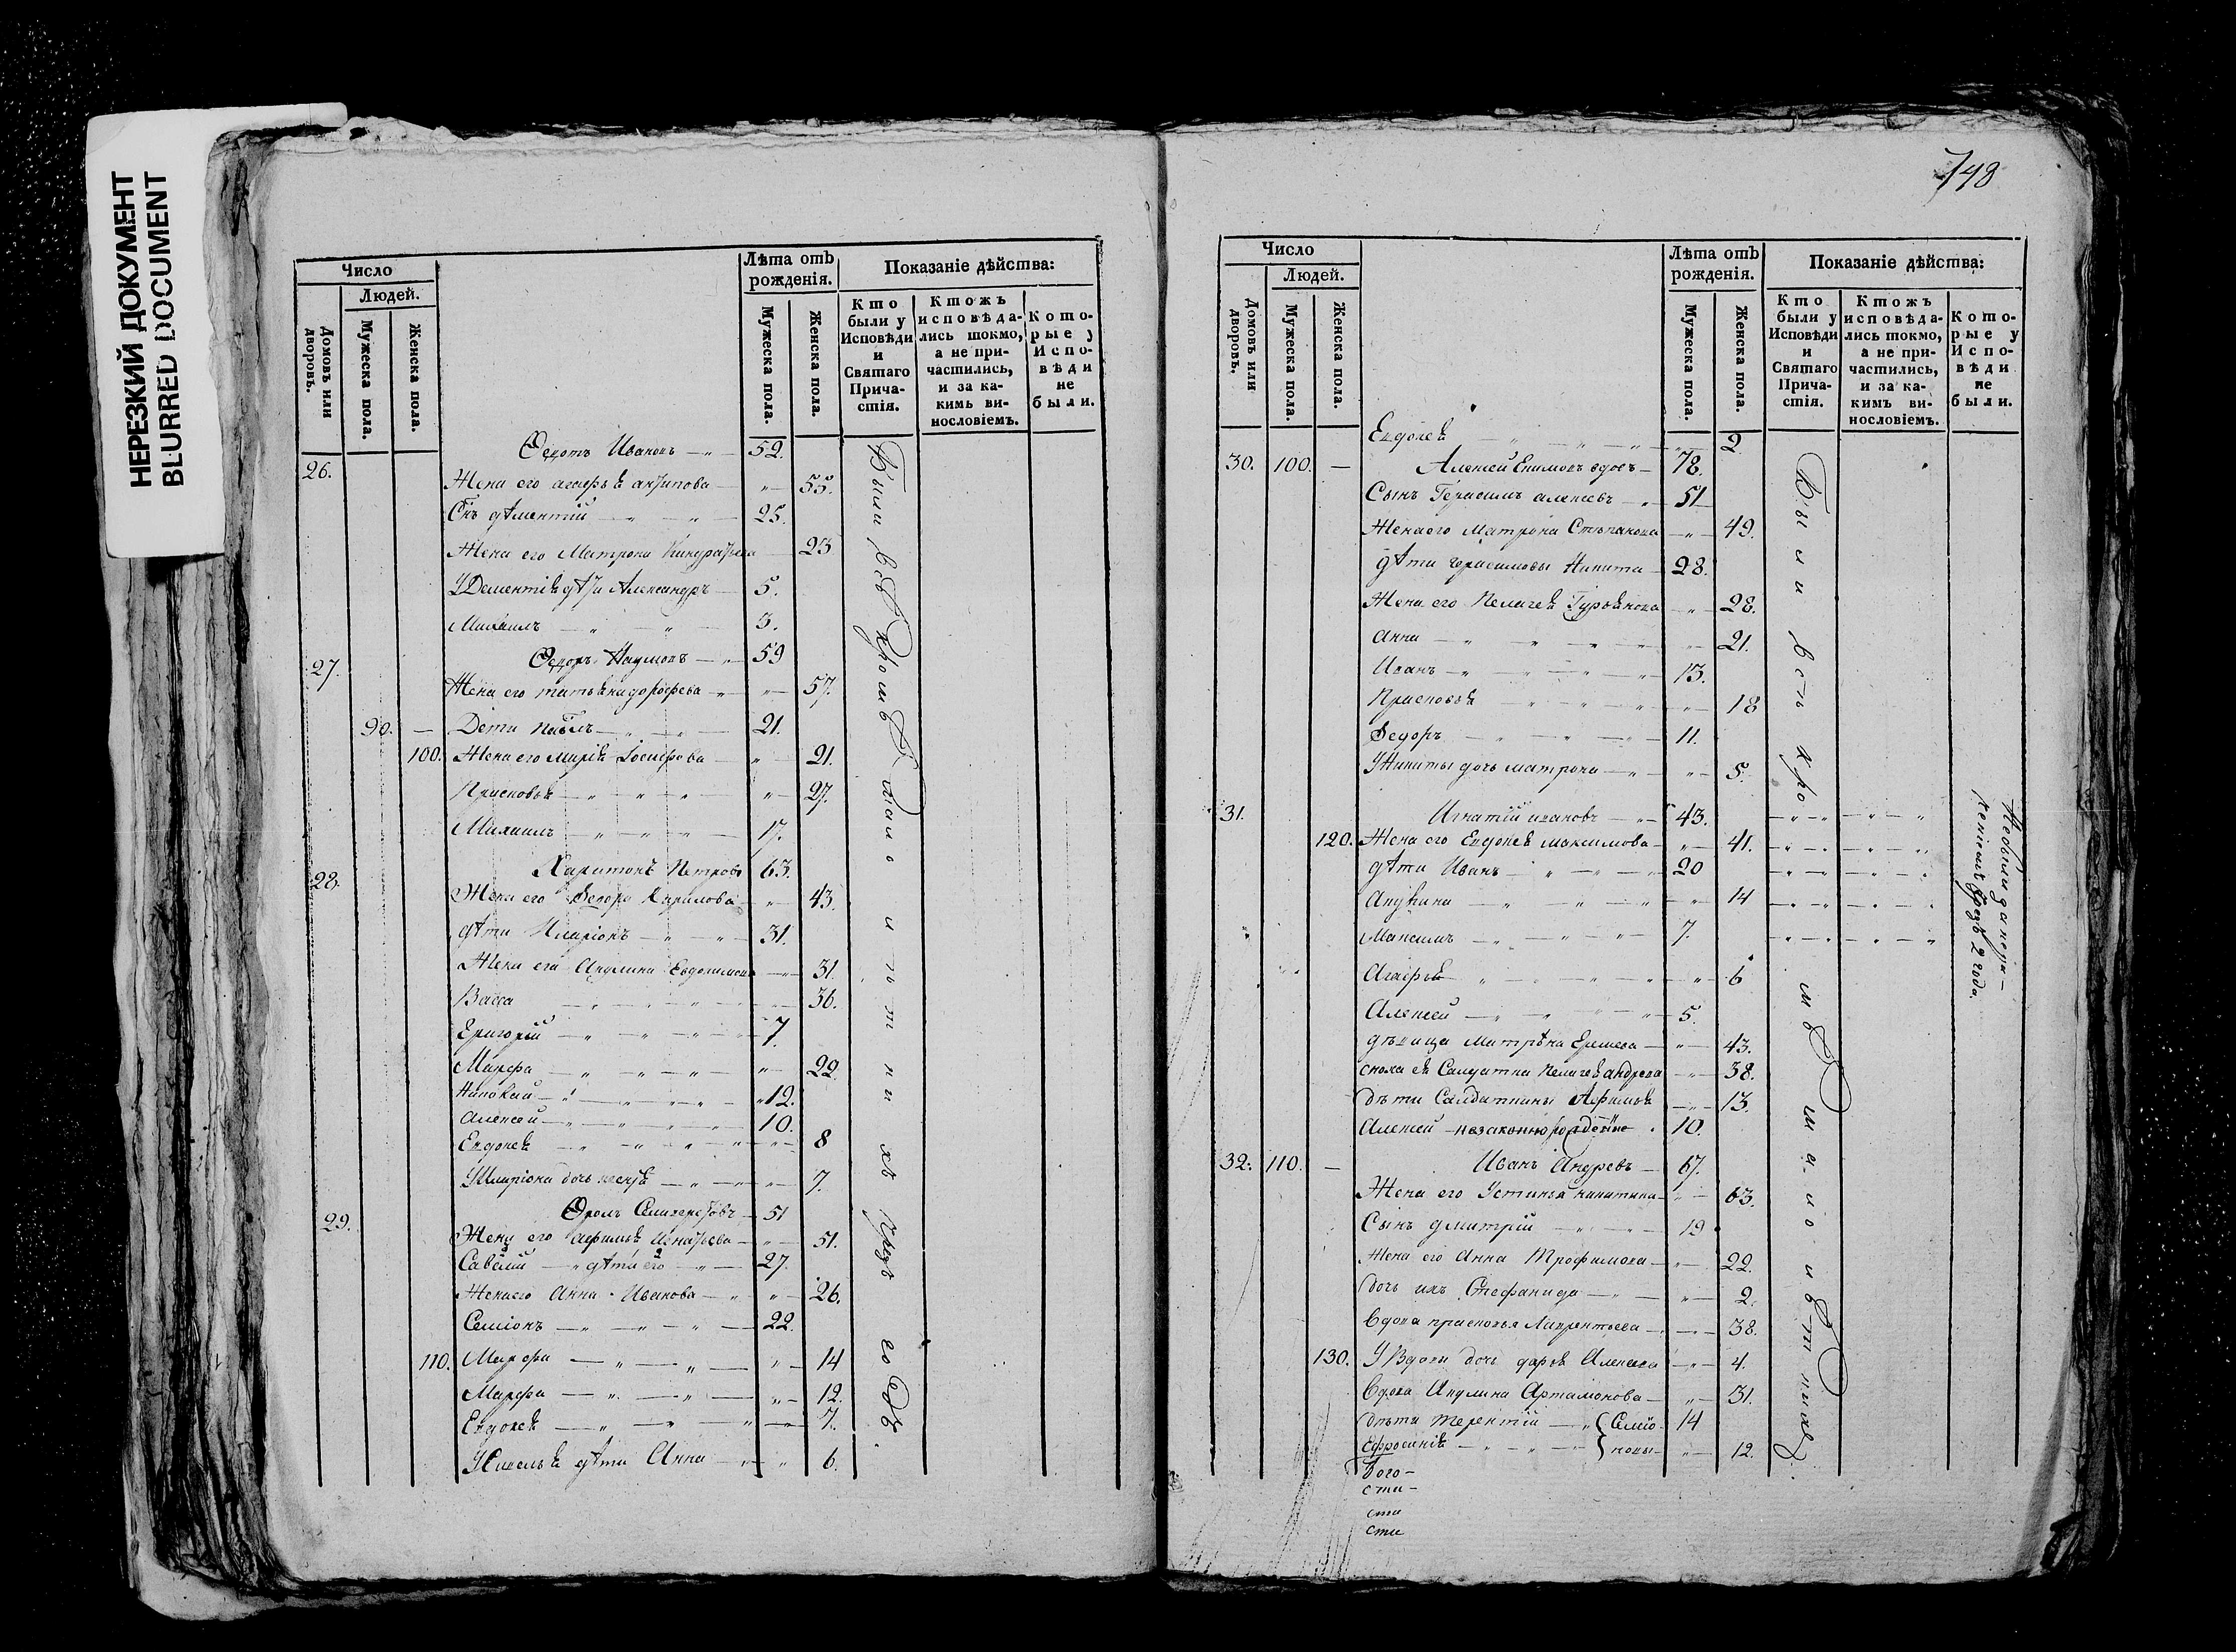 НЕРЕЗКИЙ ДОКУМЕНТ
BLURRED DOCUMENT
Число
Людей.
Домовъ или дворовъ.
Мужеска пола.
Женска пола.
Лѣта отъ рожденія.
Мужеска пола.
Женска пола.
Показаніе дѣйства:
Кто были у Исповѣди и Святаго Причастія.
Ктожъ исповѣдались токмо, а не причастились, и за какимъ винословіемъ.
Которые у Исповѣди не были.
26. Ѳедотъ Ивановъ 52.
Жена его агафья антипова 55.
Снъ дѣментій 25.
Жена его Матрона Кондратьева 23
УДементія дѣти Александръ 5.
Михаилъ 3.
27. Ѳедоръ Наумовъ 59
Жена его татьяна дорофеева 57.
90. — Дети павелъ 21.
100. Жена его марія Іосифова 21.
Прасковья 27.
Михаилъ 17.
28. Харитонъ Петровъ 63.
Жена его Ѳедора Кирилова 43.
дѣти Иларіонъ 31.
Жена его Акулина Евдокимова 31.
Васса 36.
Григорій 7.
Марфа 22.
Николай 12.
Алексей 10.
Евдокея 8
УИларіона дочь 7.
29. Ѳролъ Селиверстовъ 51
Жена его афимья Игнатьева 51.
Савелій дѣти его 27.
Жена его Анна Иванова 26.
Семіонъ 22.
110. Марфа 14
Марфа 12.
Евдокея 7.
УСавелья дѣти Анна 6.
Были всѣ кромѣ мало и тни хъ предъ годѣ.
748
Число
Людей.
Домовъ или дворовъ.
Мужеска пола.
Женска пола.
Лѣта отъ рожденія.
Мужеска пола.
Женска пола.
Показаніе дѣйства:
Кто были у Исповѣди и Святаго Причастія.
Ктожъ исповѣдались токмо, а не причастились, и за какимъ винословіемъ.
Которые у Исповѣди не были.
Евдокея 2
30. 100. — Алексей Екимовъ вдовъ 78.
Сынъ Герасимъ алексеевъ 51
Жена его Матрона Степанова 49.
дѣти герасимовы Никита 28.
Жена его Пелагея Гурьянова 28.
анна 21.
Иванъ 13.
Прасковья 18
Ѳедоръ 11.
УНикиты дочь матрона 5.
31. Игнатій ивановъ 43.
120. Жена его Евдокея максимова 41.
дѣти Иванъ 20
Акулина 14
Максимъ 7.
Агафья 6
Алексей 5.
дѣвица Матрѣна 43.
сноха ея Салдатка Пелагея андреева 38.
дѣти Салдаткины Афимья 13.
Алексей незаконнорожденны 10.
32. 110. — Иванъ Андреевъ 67.
Жена его Устинья никитина 63.
Сынъ дмитрій 19
Жена его Анна Трофимова 22.
дочь ихъ Стефанида 2.
вдова прасковья Лаврентьева 38.
130. УВдовы дочь дарья Алексеева 4.
вдова Акулина Артамонова 31.
дѣти терентій Семіо- 14
Ефросинія новы 12.
Были всѣ кромѣ малолѣтнихъ.
Бого-
сти-
сти
сти